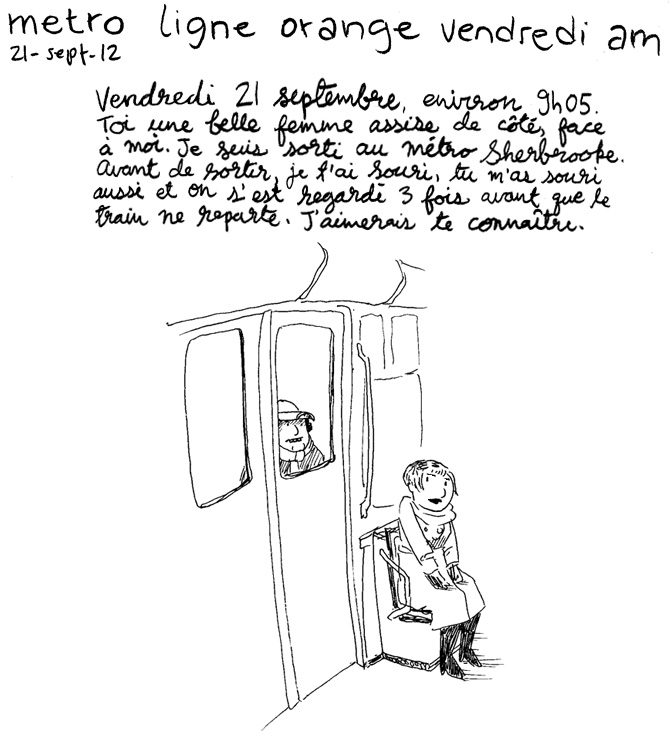 metro ligne orange vendredi am
21-sept-12
Vendredi 21 septembre, environ 9h05.
Toi une belle femme assise de côté, face
à moi. Je suis sorti au métro Sherbrooke.
Avant de sortir, je t'ai souri, tu m'as souri
aussi et on s'est regardé 3 fois avant que le
train ne reparte. J'aimerais te connaître.